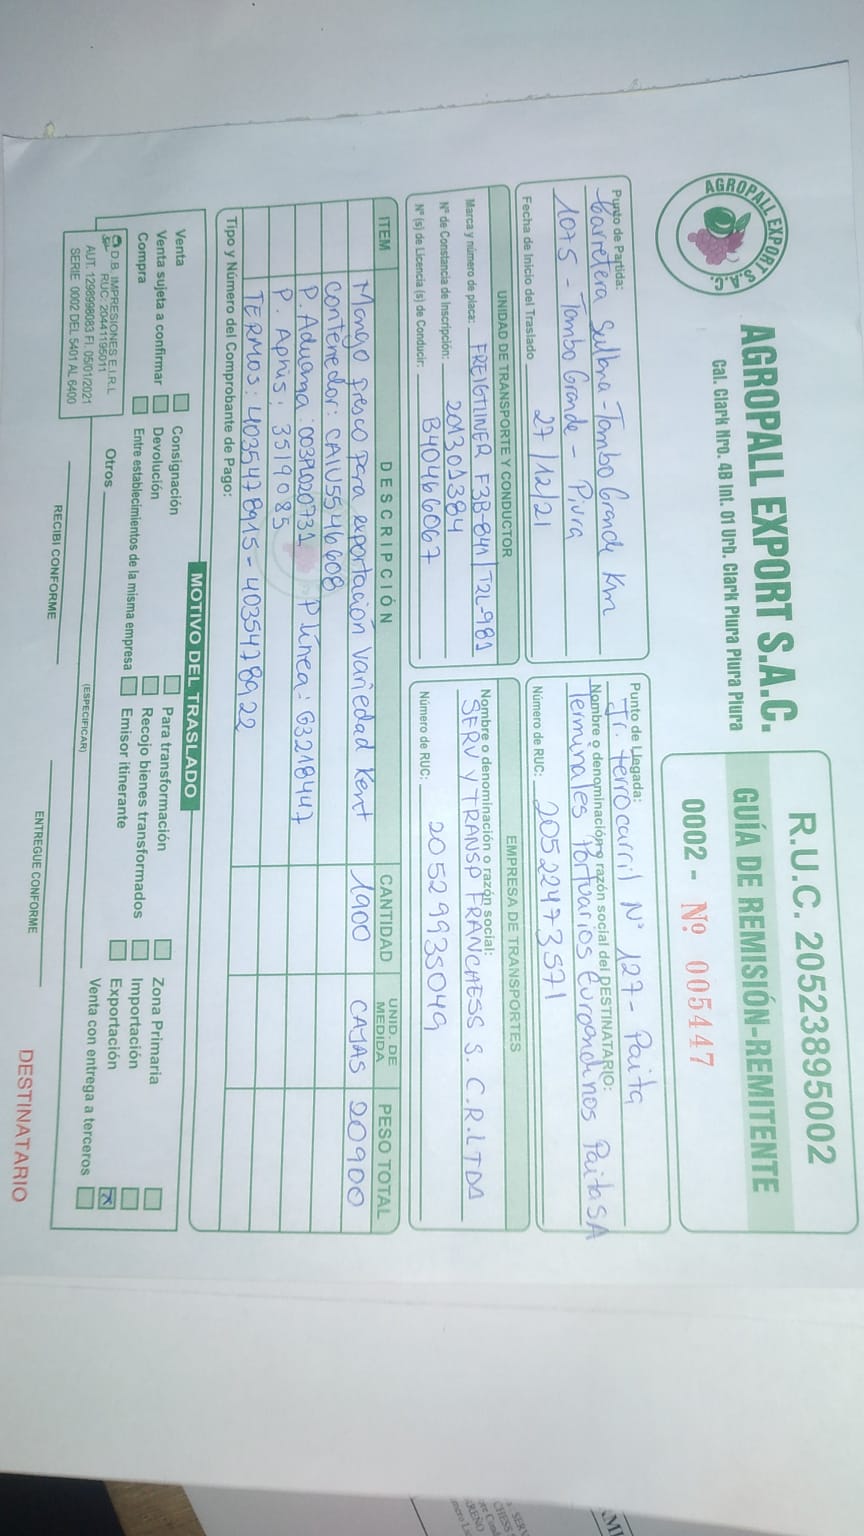 AGROPALL EXPORT S.A.C.
AGROPALL EXPORT S.A.C.
Cal. Clark Nro. 4B Int. 01 Urb. Clark Piura Piura Piura
R.U.C. 20523895002
GUÍA DE REMISIÓN-REMITENTE
0002 - Nº 005447
Punto de Partida:
Carretera Sullana-Tambo Grande Km
1075 - Tambo Grande - Piura
Fecha de Inicio del Traslado 27/12/21
Punto de Llegada:
Jr. ferrocarril N° 127 - Paita
Nombre o denominación o razón social del DESTINATARIO:
Terminales Portuarios Euroandinos Paita SA
Número de RUC: 20522473571
UNIDAD DE TRANSPORTE Y CONDUCTOR
Marca y número de placa: FREIGTLINER F3B-841/T2L-981
Nº de Constancia de Inscripción: 201301384
Nº (s) de Licencia (s) de Conducir: B40466067
EMPRESA DE TRANSPORTES
Nombre o denominación o razón social:
SERV Y TRANSP FRANCHESS S.C.R.LTDA
Número de RUC: 20529935049
ITEM DESCRIPCIÓN CANTIDAD UNID. DE MEDIDA PESO TOTAL
Mango fresco para exportación Variedad Kent 1900 CAJAS 20900
Contenedor: CAIU5546608
P. Aduana: 003A020731 P línea: G3218447
P. Apiis: 3519085
TERMOS: 4035478915 - 4035478922
Tipo y Número del Comprobante de Pago:
MOTIVO DEL TRASLADO
Venta Consignación Para transformación Zona Primaria
Venta sujeta a confirmar Devolución Recojo bienes transformados Importación
Compra Entre establecimientos de la misma empresa Emisor itinerante Exportación
Otros Venta con entrega a terceros
(ESPECIFICAR)
D.B. IMPRESIONES E.I.R.L
RUC: 20441195011
AUT. 1298998083 FI. 05/01/2021
SERIE 0002 DEL 5401 AL 6400
RECIBI CONFORME
ENTREGUE CONFORME
DESTINATARIO